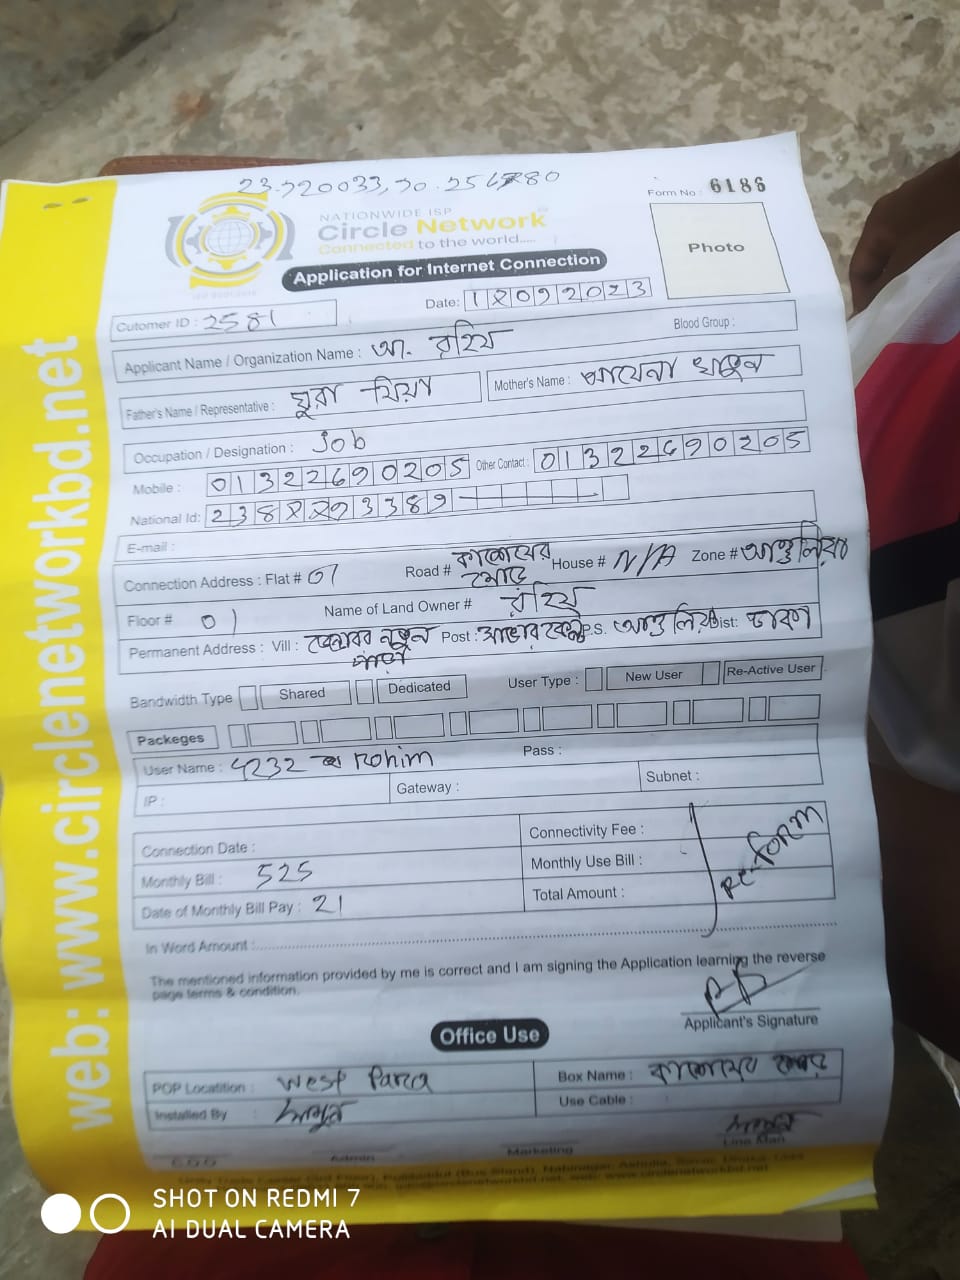 Form No : 6186
NATIONWIDE ISP
Circle Network
Connected to the world.....
Photo
Application for Internet Connection
Date:
Cutomer ID : 2581
Blood Group :
Applicant Name / Organization Name : আ. রহিম
Father's Name / Representative : মিয়া
Mother's Name : খাতুন
Occupation / Designation : Job
Mobile : 01322690205 Other Contact : 01322690205
National Id:
E-mail :
Connection Address : Flat # 01 Road # House # N/A Zone # আশুলিয়া
Floor # 01 Name of Land Owner # রহিম
Permanent Address : Vill : নতুন পাড়া Post : P.S. আশুলিয়া Dist: ঢাকা
Bandwidth Type Shared Dedicated User Type : New User Re-Active User
Packeges
User Name : Rohim Pass :
IP : Gateway : Subnet :
Connection Date : Connectivity Fee :
Monthly Bill : 525 Monthly Use Bill :
Date of Monthly Bill Pay : 21 Total Amount :
Re-form
In Word Amount :
The mentioned information provided by me is correct and I am signing the Application learning the reverse
page terms & condition.
Applicant's Signature
Office Use
POP Locatition : West Para Box Name :
Installed By : Use Cable :
C.O.O Admin Marketing Line Man
web: www.circlenetworkbd.net
SHOT ON REDMI 7
AI DUAL CAMERA